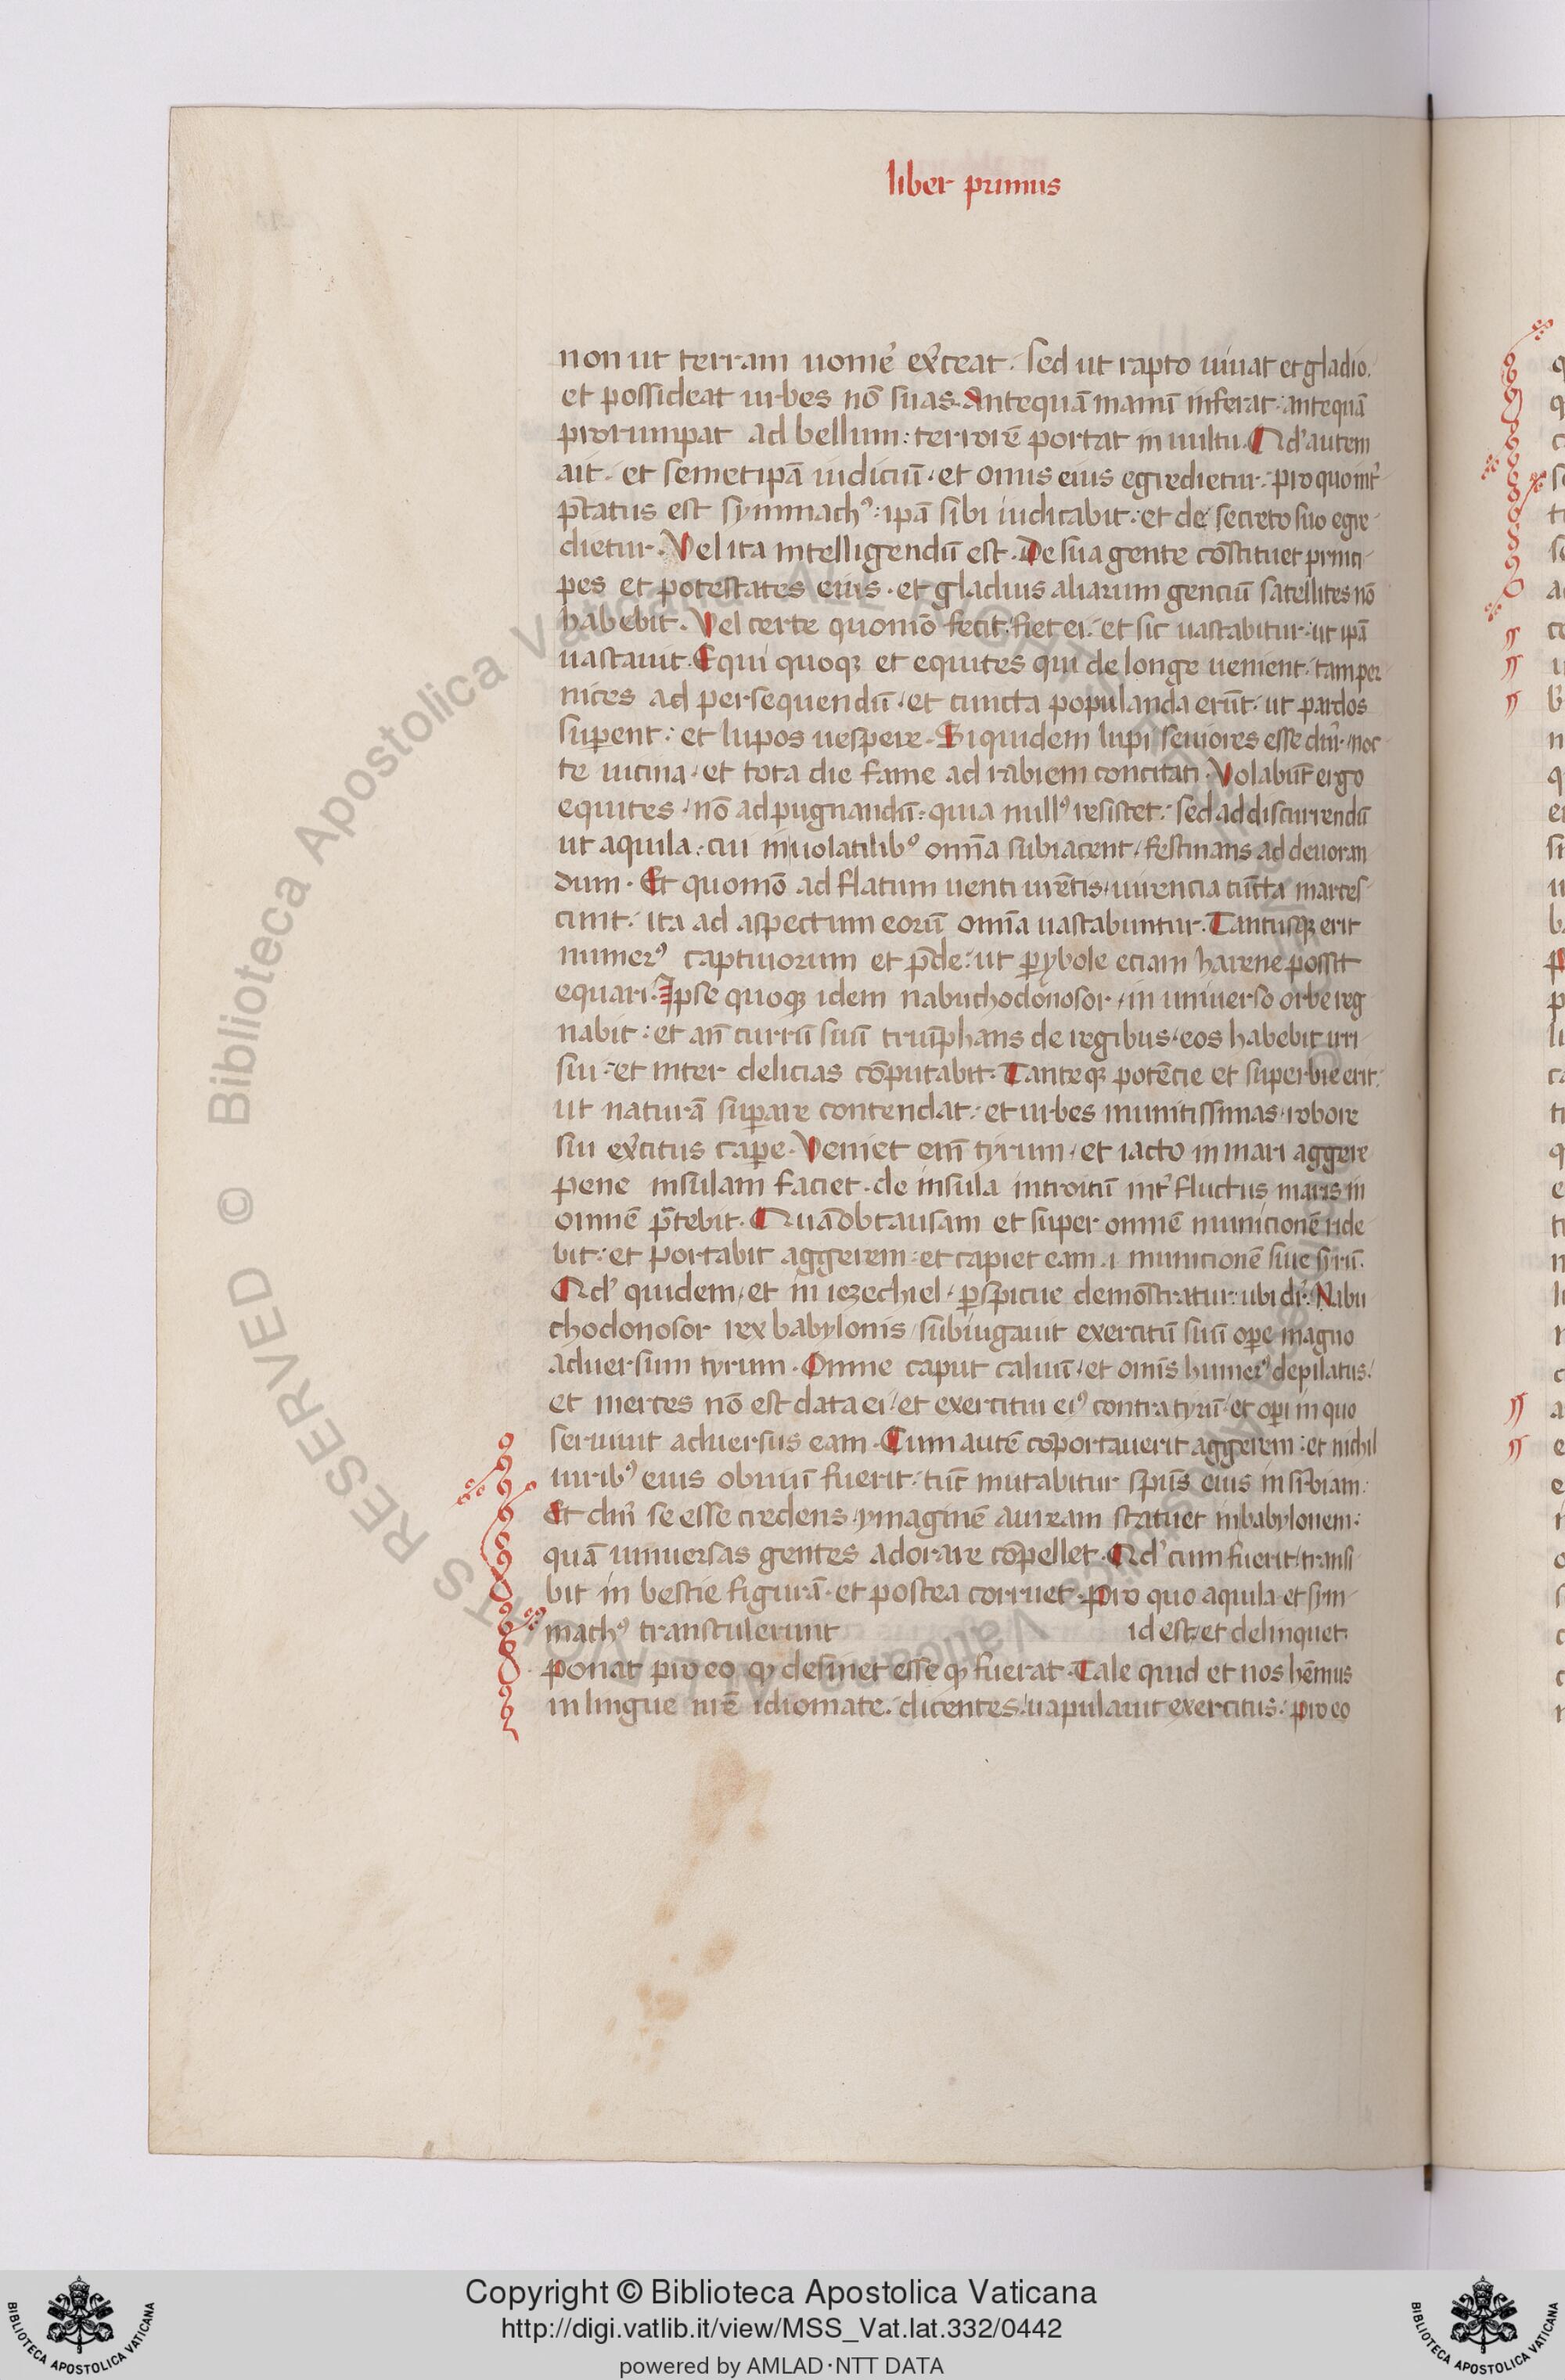 liber primus
non ut terram uomē exceat. sed ut rapto uiuat et gladio.
et possideat urbes nō suas. Antequā manū inferat: antequā
prorumpat ad bellum: terrorē portat in uultu. Qd' autem
ait. et semetipā iudiciū. et onus eius egredietur. pro quo int'
p̄tatus est symmachꝰ: ipā sibi iudicabit: et de secreto suo egre
dietur. Vel ita intelligendū est. De sua gente cōstituet princi
pes et potestates eius. et gladius aliarum genciū satellites nō
habebit. Vel certe quomō fecit: fiet ei. et sic uastabitur: ut ipā
uastauit. Equi quoqꝫ et equites qui de longe uenient. tam per
nices ad persequendū. et cuncta populanda erūt. ut pardos
suꝑent: et lupos uespere. Siquidem lupi seuiores esse dn̄r. noc
te uicina. et tota die fame ad rabiem concitati. Volabūt ergo
equites. nō ad pugnandū: quia nullꝰ resistet: sed ad discurrendū
ut aquila: cui in uolatilibꝰ om̄a subiacent. festinans ad deuoran
dum. Et quomō ad flatum uenti urētis. uirencia cūcta marces
cunt. ita ad aspectum eorū om̄a uastabuntur. Tantusqꝫ erit
numerꝰ captiuorum et p̄de: ut ꝑybole eciam harene possit
equari. Ipse quoqꝫ idem nabuchodonosor. in uniuerso orbe reg
nabit: et an̄ currū suū triūphans de regibus. eos habebit uri
sui: et inter delicias cōputabit. Tanteqꝫ potēcie et superbie erit:
ut naturā suꝑare contendat: et urbes munitissimas. robore
sui ex̄citus caꝑe. Veniet em̄ tyrum. et iacto in mari aggere
pene insulam faciet. de insula introitū int' fluctus maris in
omnē p̄tebit. Quā ob causam et super omnē municionē ride
bit: et portabit aggerem: et capiet eam. i. municionē siue syrū.
Qd' quidem. et in iezechiel. ꝑspicue demōstratur: ubi dr̄. Nabu
chodonosor rex babylonis. subiugauit exercitū suū oꝑe magno
aduersum tyrum. Omne caput caluū. et omīs humerꝰ depilatus.
et merces nō est data ei. et exercitui eiꝰ contra tyrū. et oꝑi in quo
seruiuit aduersus eam. Cum autē cōportauerit aggerem: et nichil
uiribꝰ eius obuiū fuerit. tūc mutabitur spūs eius in sup̄biam:
Et dm̄ se esse credens. ymaginē auream statuet in babylonem:
quā uniuersas gentes adorare cōpellet. Qd' cum fuerit. transi
bit in bestie figurā. et postea corruet. Pro quo aquila et sym
machꝰ transtulerunt id est. et delinquet.
ponat pro eo qꝫ desinet esse qꝫ fuerat. Tale quid et nos hēmus
in lingue nr̄e idiomate. dicentes. uapulauit exercitus. pro eo
Copyright © Biblioteca Apostolica Vaticana
http://digi.vatlib.it/view/MSS_Vat.lat.332/0442
powered by AMLAD·NTT DATA